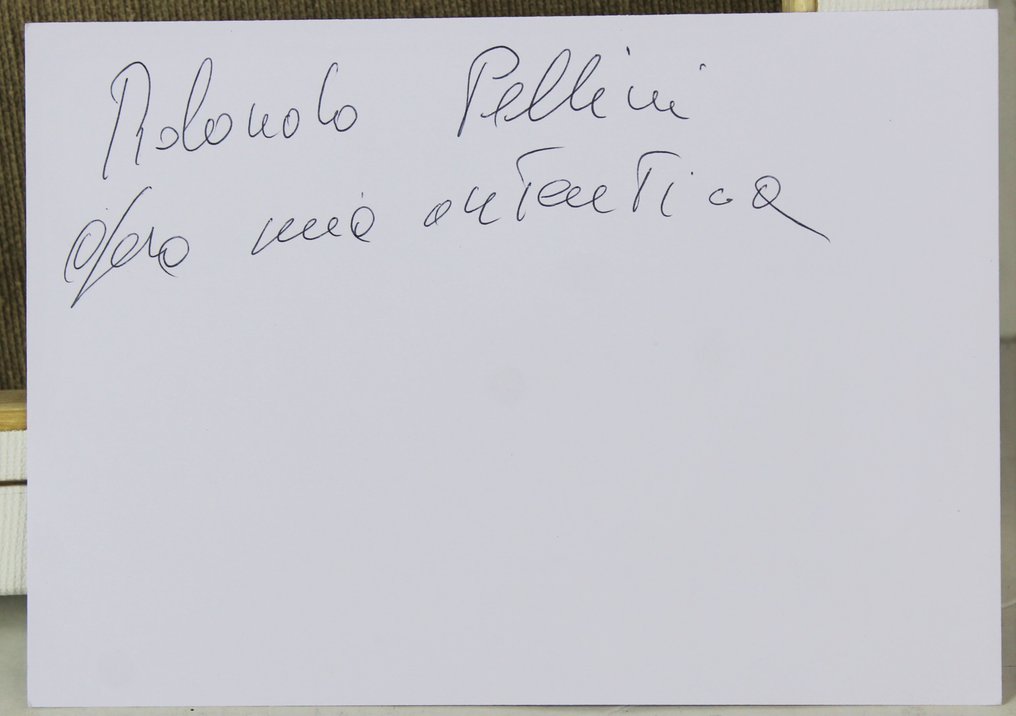 Rolando Pellini
opera mia autentica